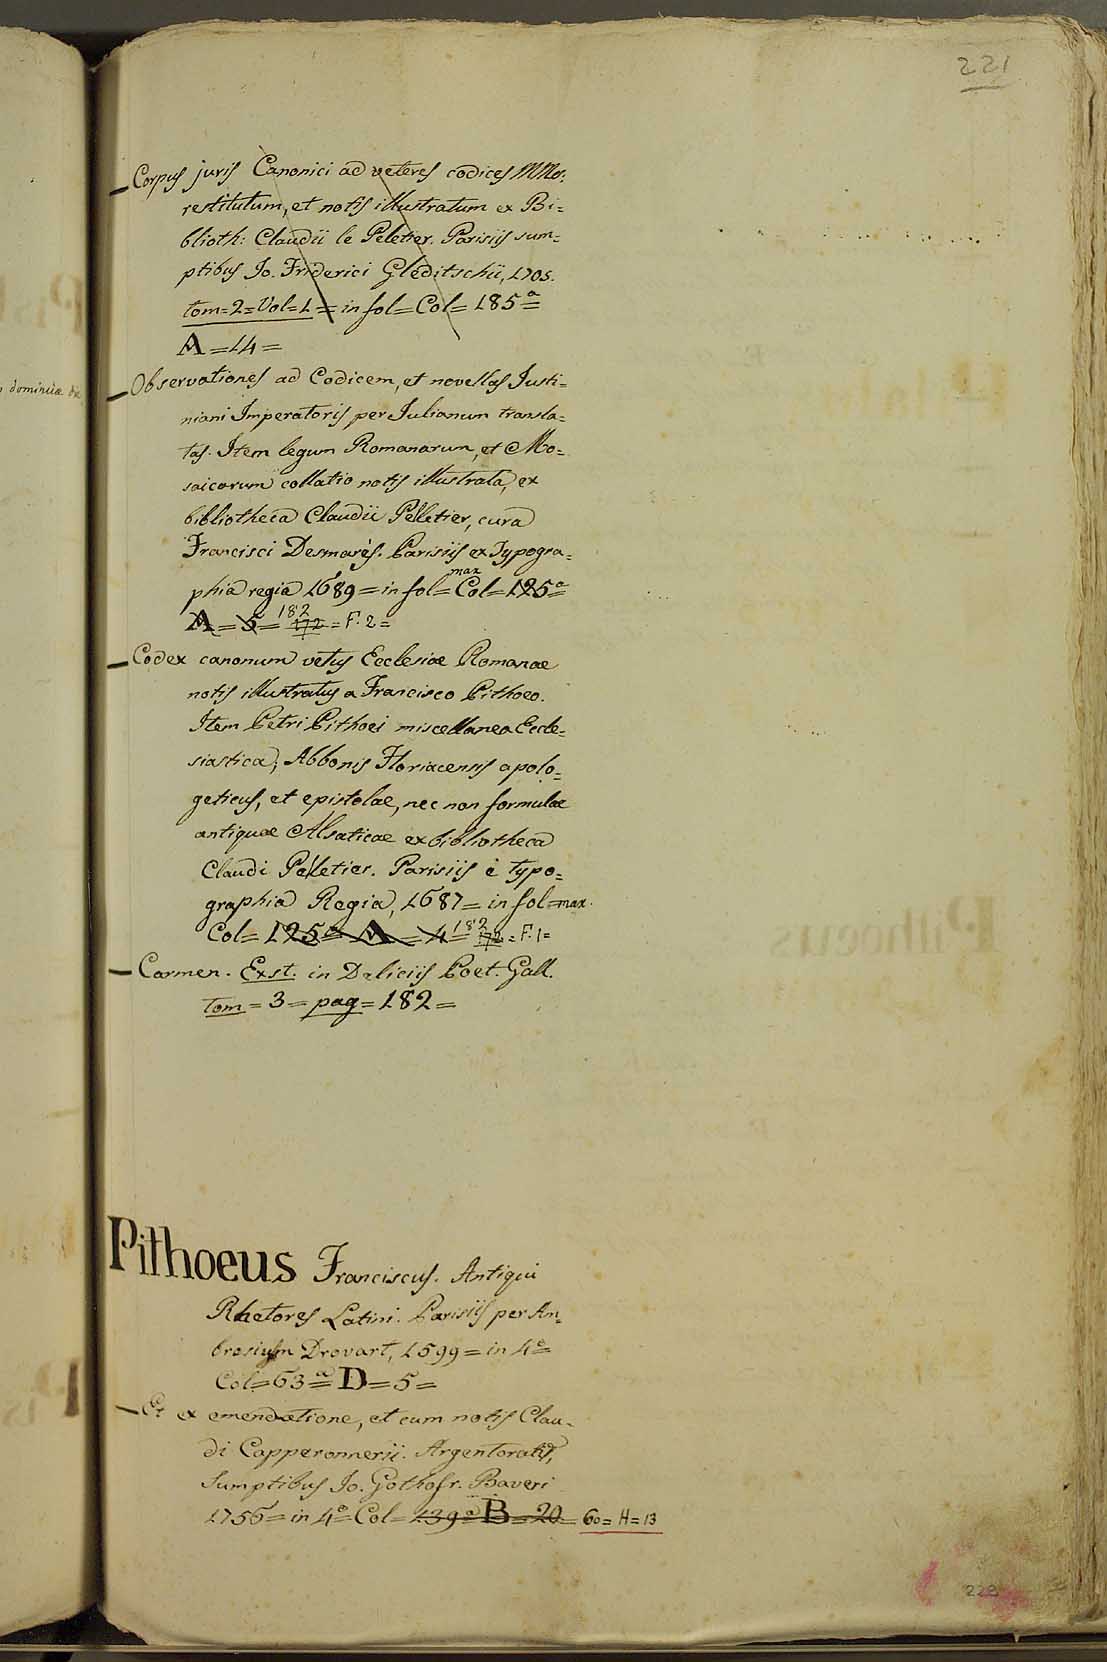 221
Corpus juris Canonici ad veteres codices MMss.
restitutum, et notis illustratum ex Bi=
blioth: Claudii le Peletier. Parisiis sum=
ptibus Jo. Friderici Gleditschii, 1705.
tom=2=Vol=1= in fol=Col=185ª=
A=14=
Observationes ad Codicem, et novellas Justi=
niani Imperatoris per Julianum transla=
tas. Item legum Romanarum, et Mo=
saicarum collatio notis illustrata, ex
bibliotheca Claudii Pelletier, cura
Francisci Desmarès. Parisiis ex Typogra=
phia regia 1689= in fol= max Col=125ª=
A=5= 182 172 = F. 2=
Codex canonum vetus Ecclesiae Romanae
notis illustratus a Francisco Pithoeo.
Item Petri Pithoei miscellanea Eccle=
siastica, Abbonis Floriacensis apolo=
geticus, et epistolae, nec non formulae
antiquae Alsaticae ex bibliotheca
Claudi Pelletier. Parisiis è typo=
graphia Regia, 1687= in fol=max.
Col=125ª=A=4= 182 172 = F. 1=
Carmen. Exst. in Deliciis Poet. Gall.
tom=3=pag=182=
Pithoeus Franciscus. Antiqui
Rhetores Latini. Parisiis per Am=
brosium Drovart, 1599= in 4º=
Col=63ª=D=5=
Et ex emendatione, et cum notis Clau=
di Capperonnerii. Argentorati,
Sumptibus Jo. Gothofr. Baveri
1756= in 4º=Col=139ª=B=20= 60=H=13
228